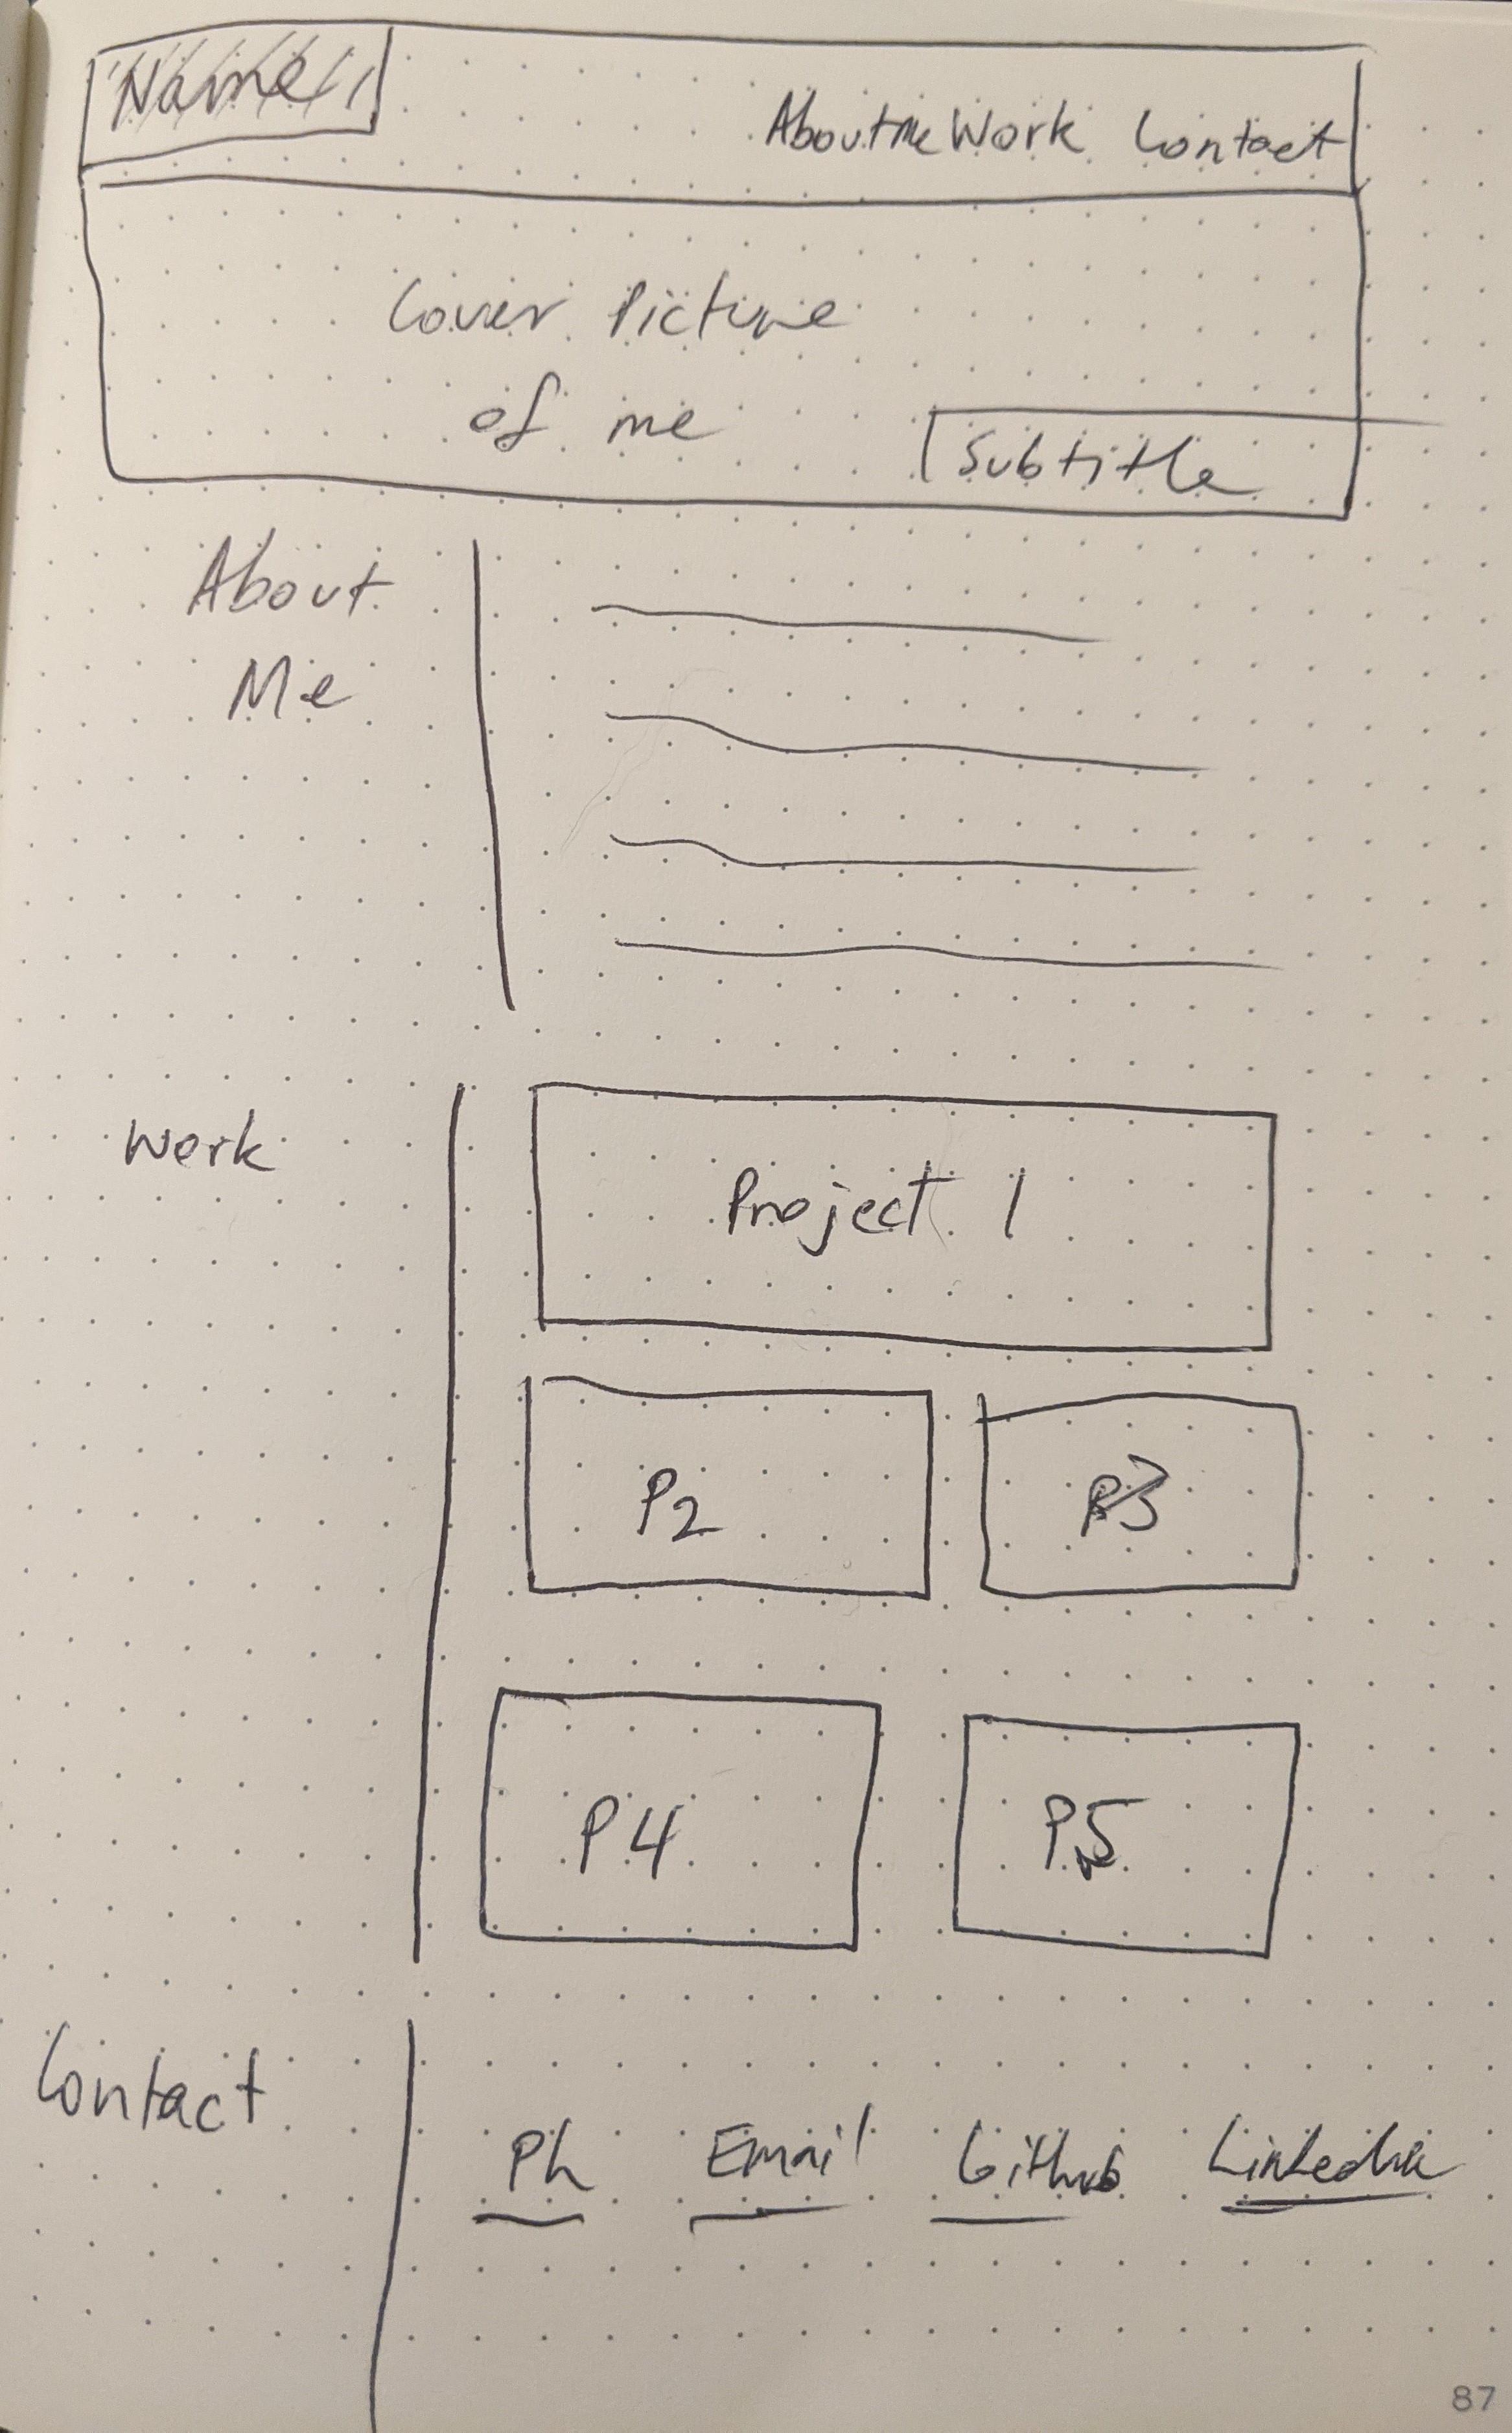 Name
About Me Work Contact
Cover Picture
of me
Subtitle
About
Me
Work
Project 1
P2
P3
P4
P5
Contact
Ph Email Github LinkedIn
87